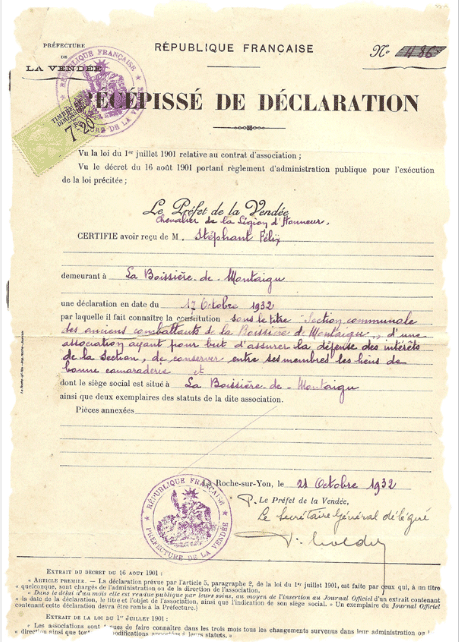 PRÉFECTURE
DE
LA VENDÉE
RÉPUBLIQUE FRANÇAISE
N° 486
RÉCÉPISSÉ DE DÉCLARATION
7F20
Vu la loi du 1er juillet 1901 relative au contrat d'association ;
Vu le décret du 16 août 1901 portant règlement d'administration publique pour l'exécution
de la loi précitée ;
Le Préfet de la Vendée
Chevalier de la Légion d'Honneur
CERTIFIE avoir reçu de M. Stéphant Félix
demeurant à La Boissière de Montaigu
une déclaration en date du 17 Octobre 1932
par laquelle il fait connaître la constitution sous le titre Section communale
des anciens combattants de la Boissière de Montaigu, d'une
association ayant pour but d'assurer la défense des intérêts
de la Section, de conserver entre ses membres les liens de
bonne camaraderie et
dont le siège social est situé à La Boissière de Montaigu
ainsi que deux exemplaires des statuts de la dite association.
Pièces annexées
La Roche-sur-Yon, le 21 Octobre 1932
P. Le Préfet de la Vendée,
Le Secrétaire Général délégué
RÉPUBLIQUE FRANÇAISE
PRÉFECTURE DE LA VENDÉE
EXTRAIT DU DÉCRET DU 16 AOUT 1901 :
« ARTICLE PREMIER. — La déclaration prévue par l'article 5, paragraphe 2, de la loi du 1er juillet 1901, est faite par ceux qui, à un titre
« quelconque, sont chargés de l'administration ou de la direction de l'association.
« Dans le délai d'un mois elle est rendue publique par leurs soins, au moyen de l'insertion au Journal Officiel d'un extrait contenant
« la date de la déclaration, le titre et l'objet de l'association, ainsi que l'indication de son siège social. » Un exemplaire du Journal Officiel
contenant cette déclaration devra être remis à la Préfecture.
EXTRAIT DE LA LOI DU 1er JUILLET 1901 :
« Les associations sont tenues de faire connaître dans les trois mois tous les changements survenus dans leur administration ou
« direction ainsi que toutes les modifications apportées à leurs statuts. »